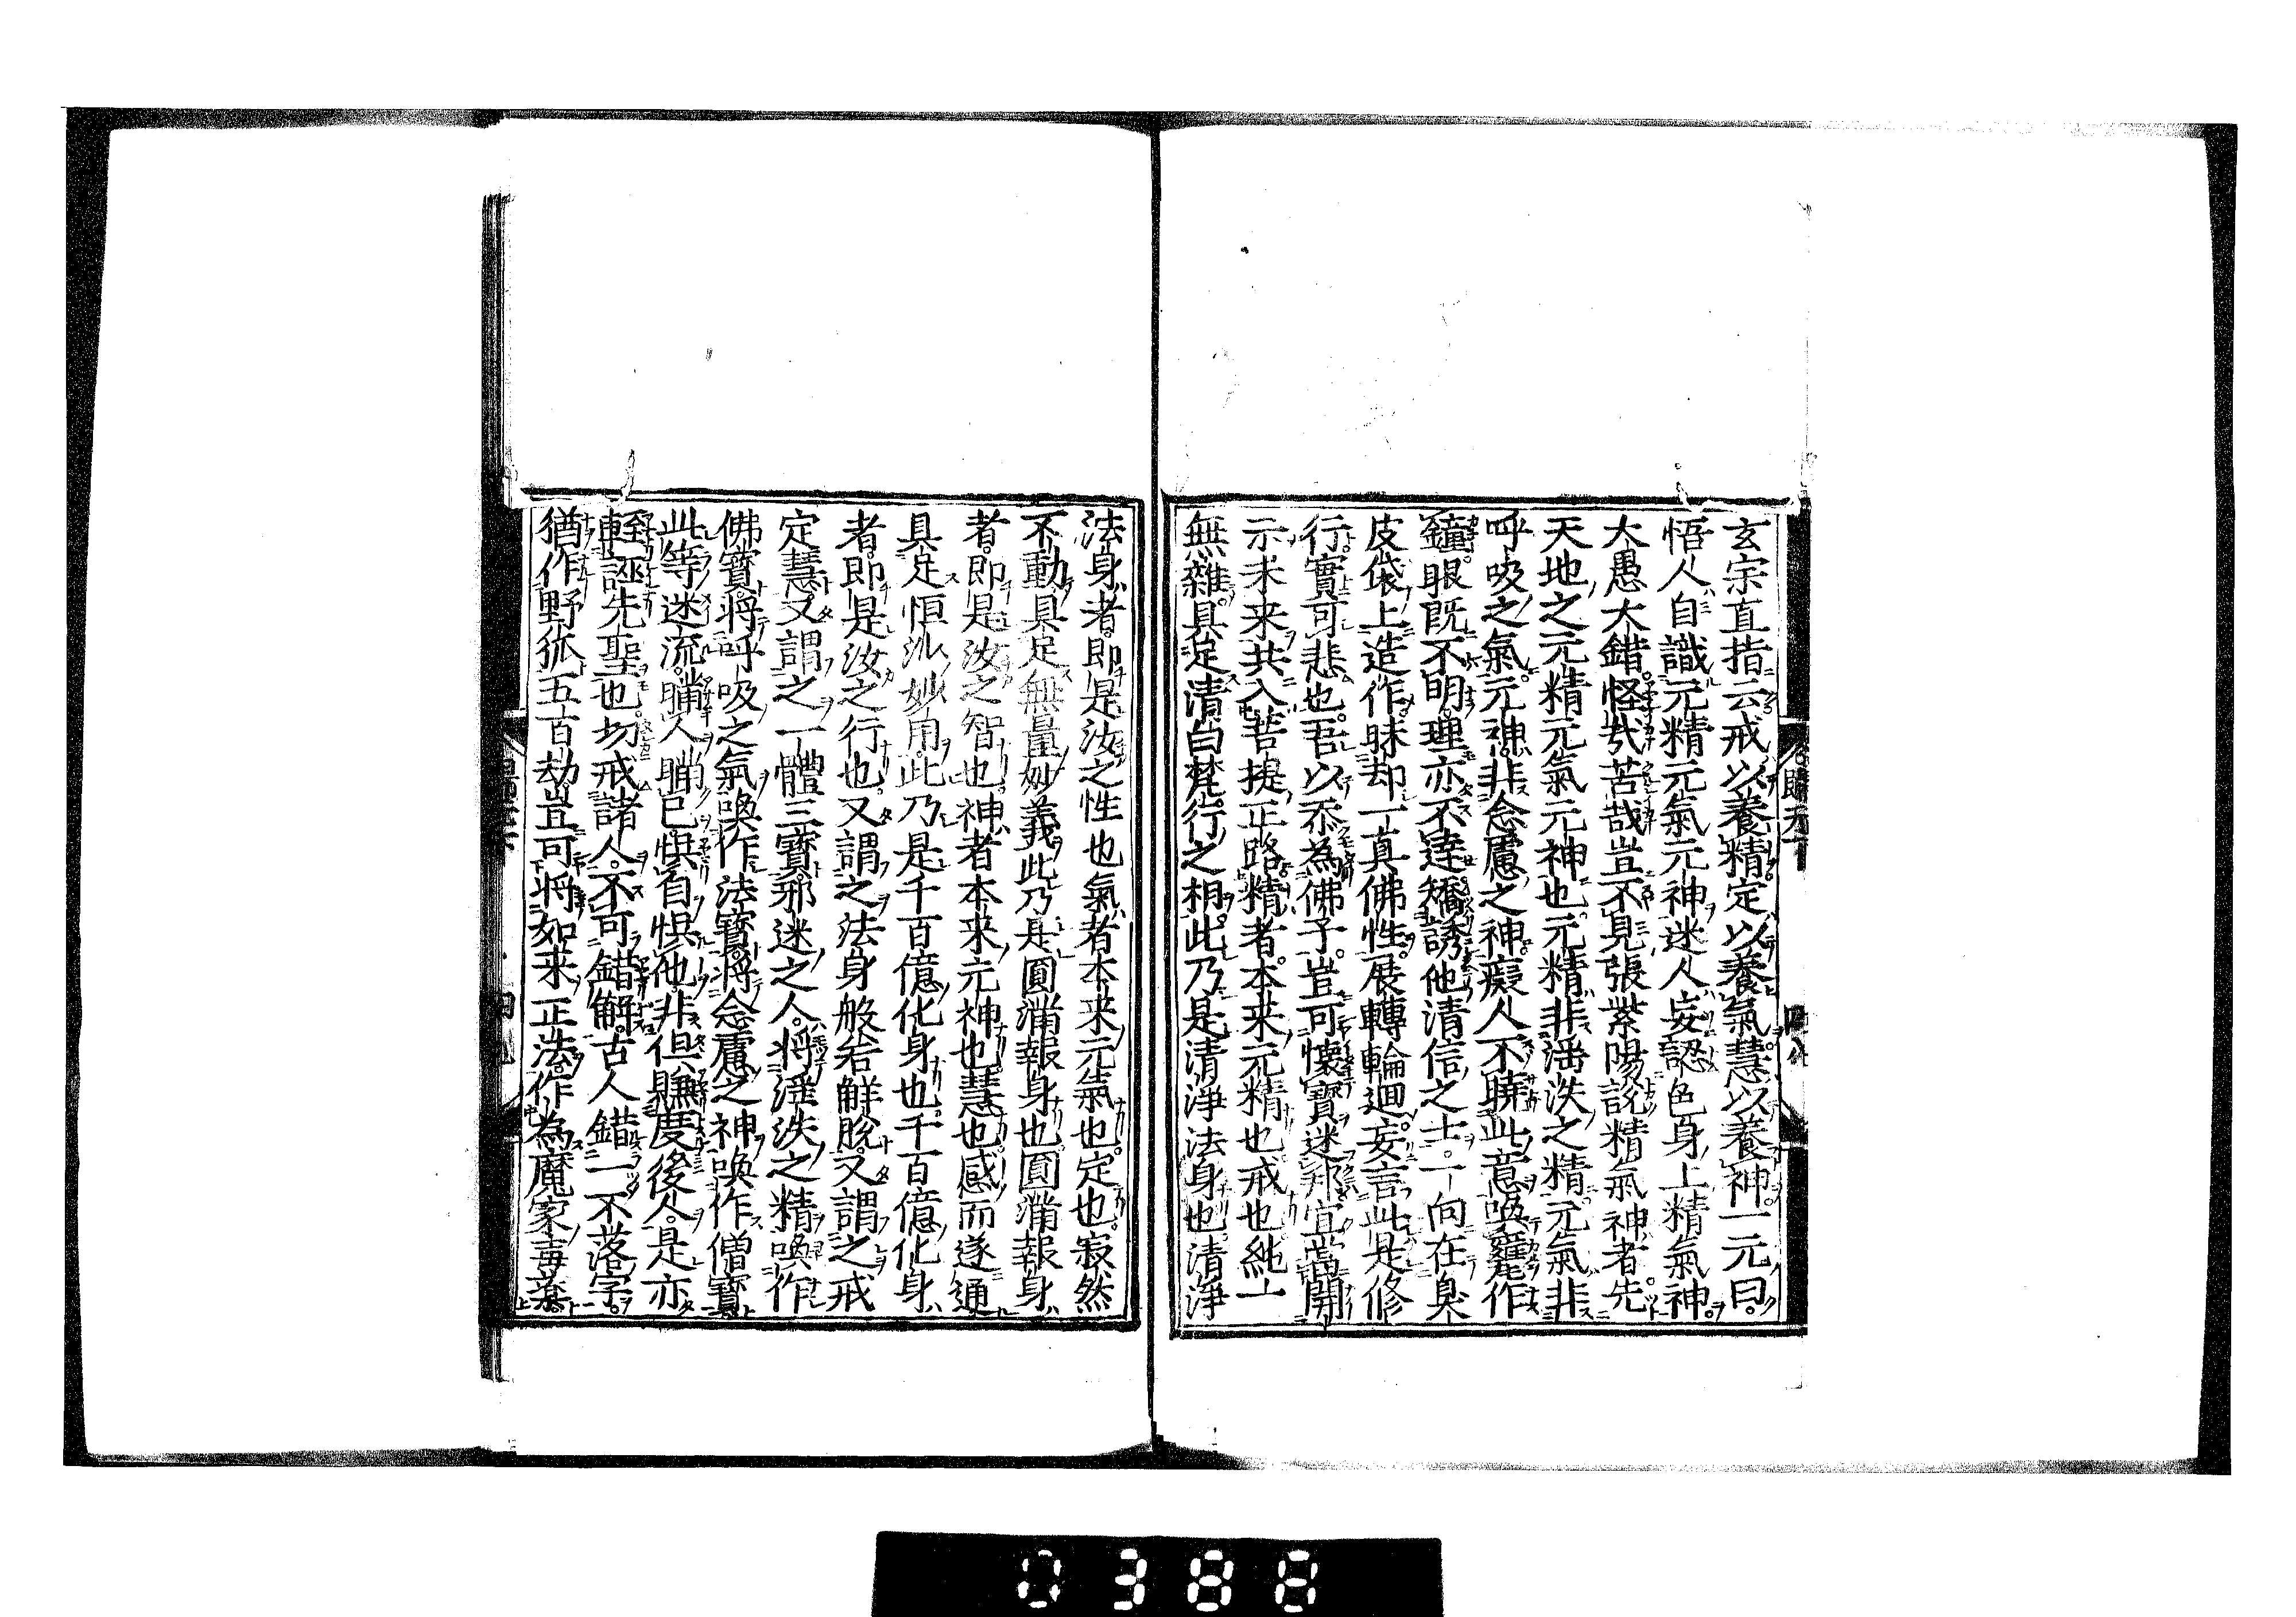 玄宗直指云戒以養精定以養氣慧以養神一元曰
悟人自識元精元氣元神迷人妄認色身上精氣神
大愚大錯怪哉苦哉豈不見張紫陽説精氣神者先
天地之元精元氣元神也元精非滛泆之精元氣非
呼吸之氣元神非念慮之神癡人不曉此意喚龞作
鐘眼既不明理亦不達矯誘他清信之士一向在臭
皮袋上造作昧却一真佛性展轉輪迴妄言此是修
行實可悲也吾以忝為佛子豈可懐寳迷邦宜當開
示未来共入菩提正路精者本来元精也戒也純一
無雜具足清白梵行之相此乃是清淨法身也清淨
法身者即是汝之性也氣者本来元氣也定也寂然
不動具足無量妙義此乃是圓滿報身也圓滿報身
者即是汝之智也神者本来元神也慧也感而遂通
具足恒沙妙用此乃是千百億化身也千百億化身
者即是汝之行也又謂之法身般若解脫又謂之戒
定慧又謂之一體三寳邪迷之人将滛泆之精喚作
佛寳将呼吸之氣喚作法寳将念慮之神喚作僧寳
此等迷流瞞人瞞己悞自悞他非但賺度後人是亦
輕誣先聖也切戒諸人不可錯解古人錯一不落字
猶作野狐五百劫豈可将如来正法作為魔家毒藥
0388